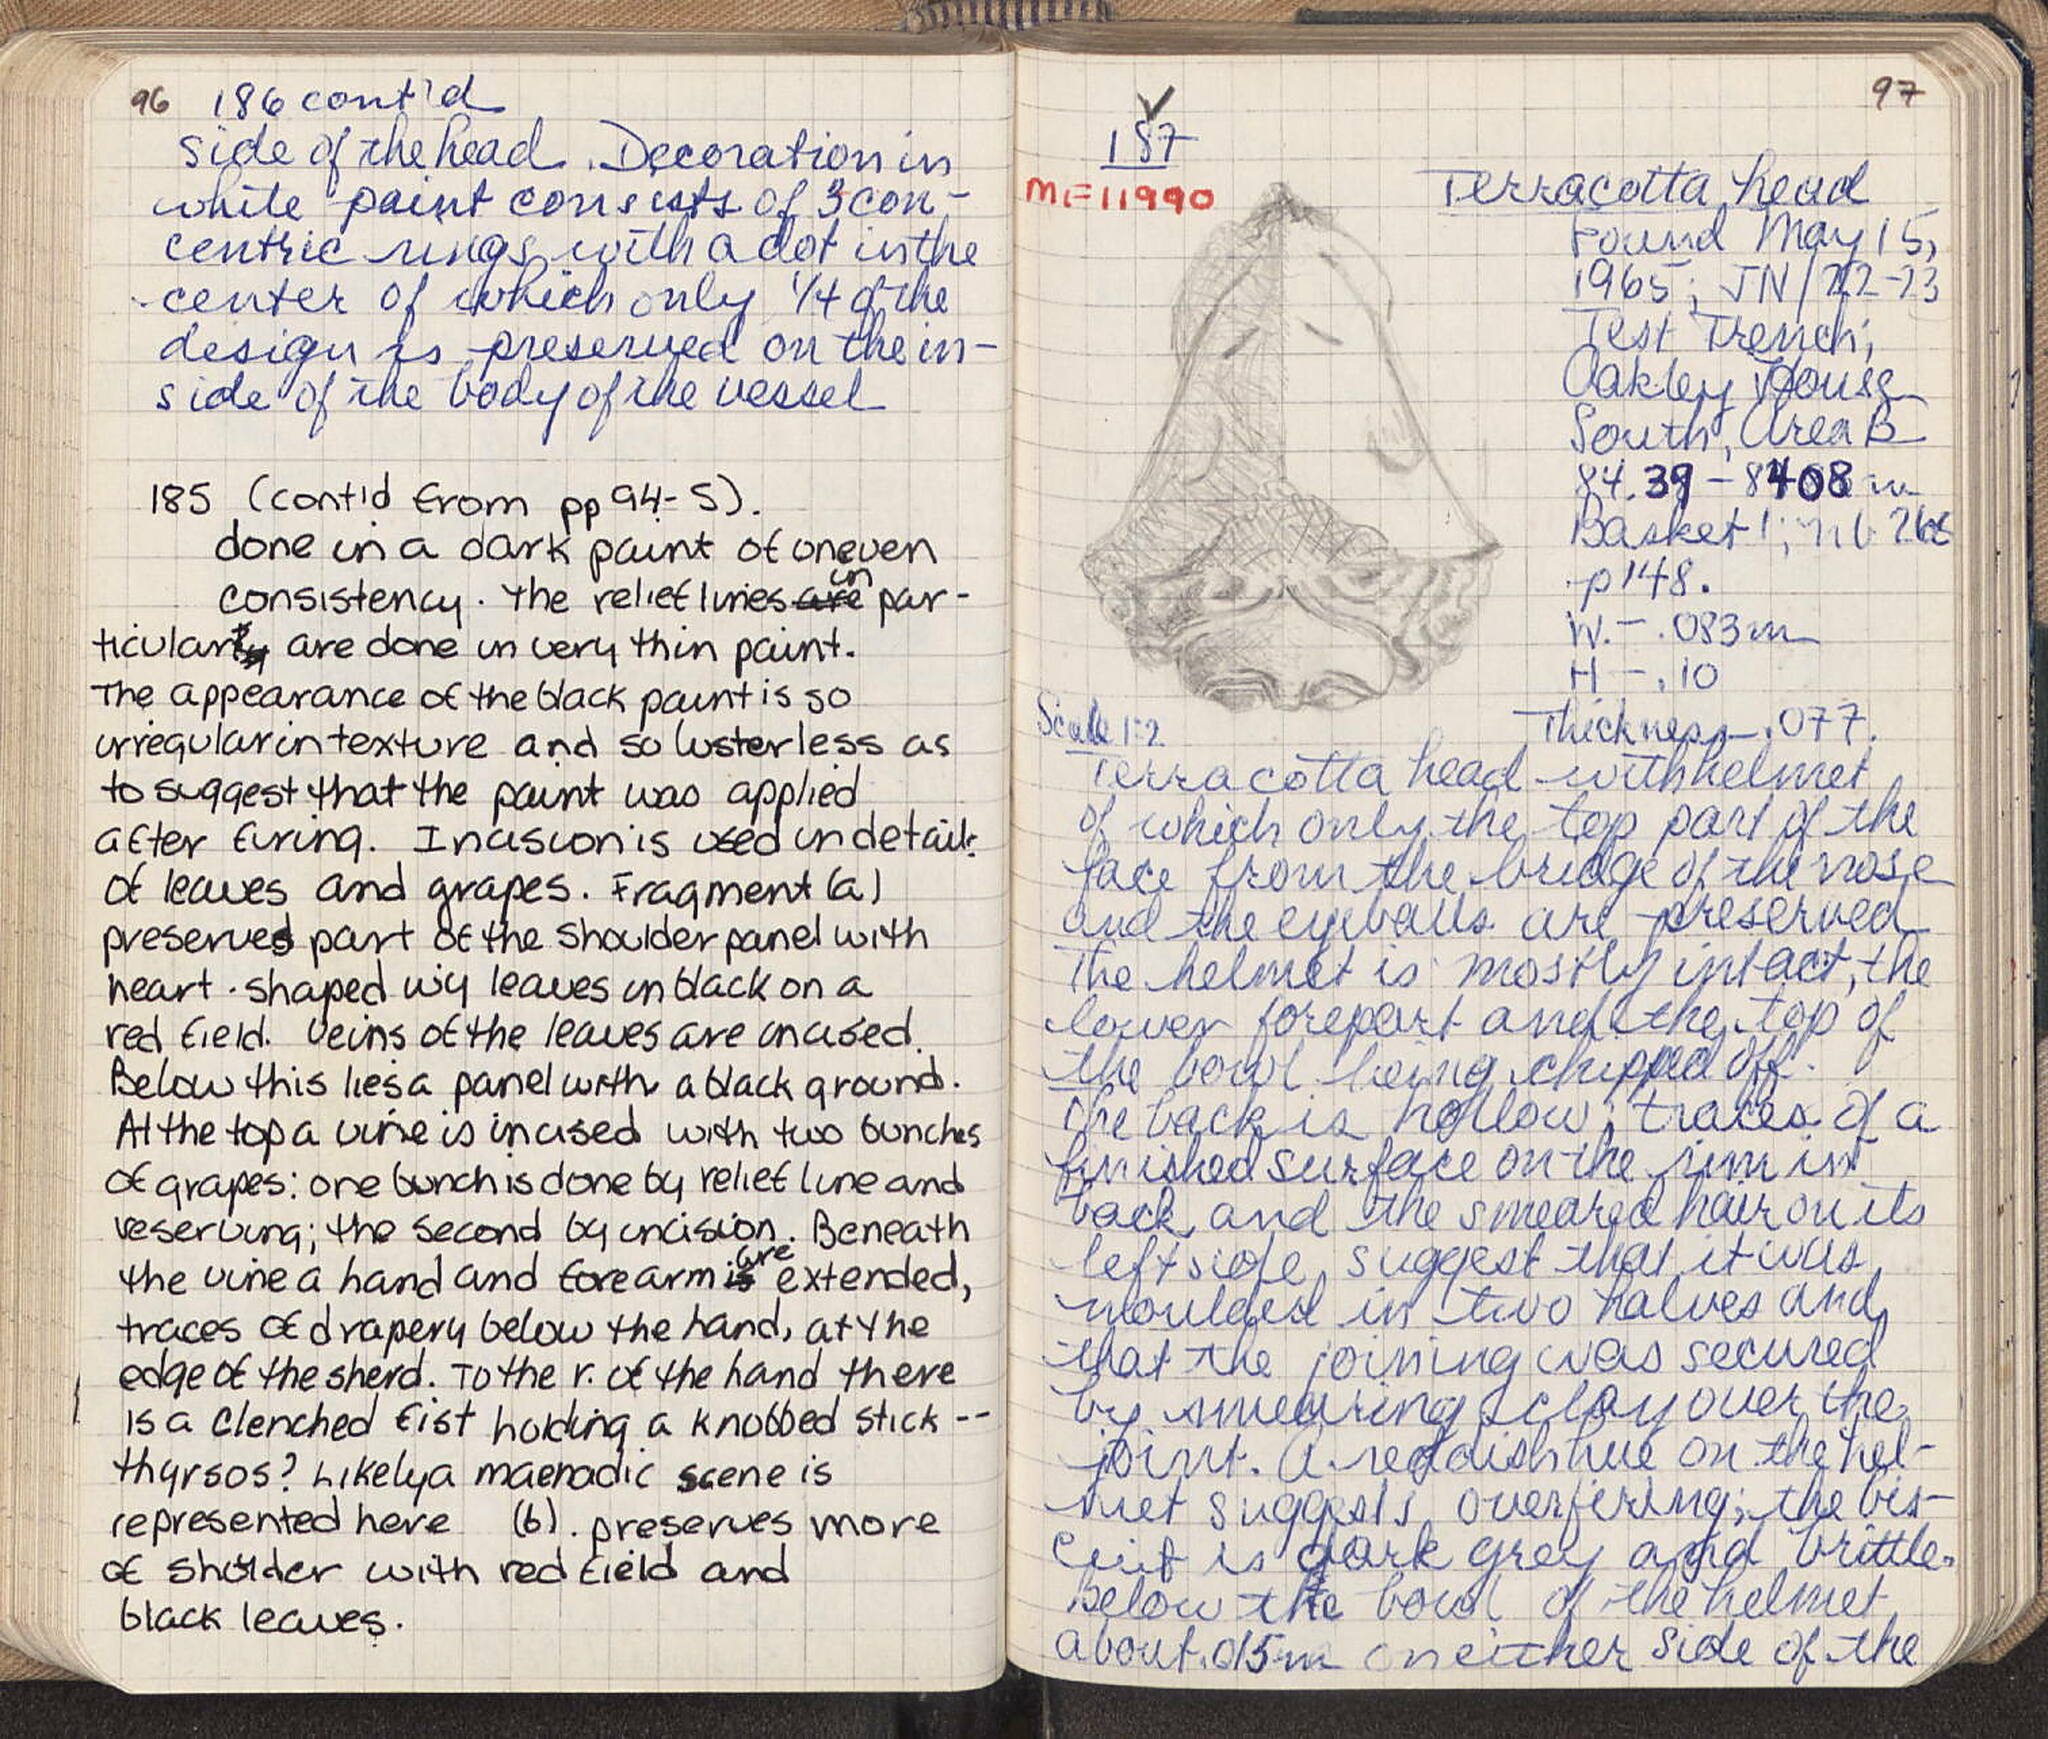 96 186 cont'd
side of the head. Decoration in
white paint consists of 3 con-
centric rings with a dot in the
center of which only 1/4 of the
design is preserved on the in-
side of the body of the vessel
185 (cont'd from pp 94-5).
done in a dark paint of uneven
consistency. The relief lines are in par-
ticular are done in very thin paint.
The appearance of the black paint is so
irregular in texture and so lusterless as
to suggest that the paint was applied
after firing. Incision is used in details
of leaves and grapes. Fragment (a)
preserves part of the shoulder panel with
heart-shaped ivy leaves in black on a
red field. Veins of the leaves are incised.
Below this lies a panel with a black ground.
At the top a vine is incised with two bunches
of grapes: one bunch is done by relief line and
reserving; the second by incision. Beneath
the vine a hand and forearm is are extended,
traces of drapery below the hand, at the
edge of the sherd. To the r. of the hand there
is a clenched fist holding a knobbed stick --
thyrsos? Likely a maenadic scene is
represented here (b). preserves more
of sholder with red field and
black leaves.
97
187
MF=11990
Terracotta head
Found May 15,
1965; JN/22-23
Test Trench;
Oakley House
South, Area B
84.39 - 8408 m
Basket 1; nb 26
p 148.
W. - .083m
H - .10
Thickness - .077.
Scale 1:2
Terracotta head with helmet
of which only the top part of the
face from the bridge of the nose
and the eyeballs are preserved
The helmet is mostly intact, the
lower forepart and the top of
the bowl being chipped off.
The back is hollow; traces of a
finished surface on the rim in
back and the smeared hair on its
left side suggest that it was
moulded in two halves and
that the joining was secured
by smearing clay over the
joint. A reddish hue on the hel-
met suggests overfiring; the bis-
cuit is dark grey and brittle.
Below the bowl of the helmet
about .015m on either side of the